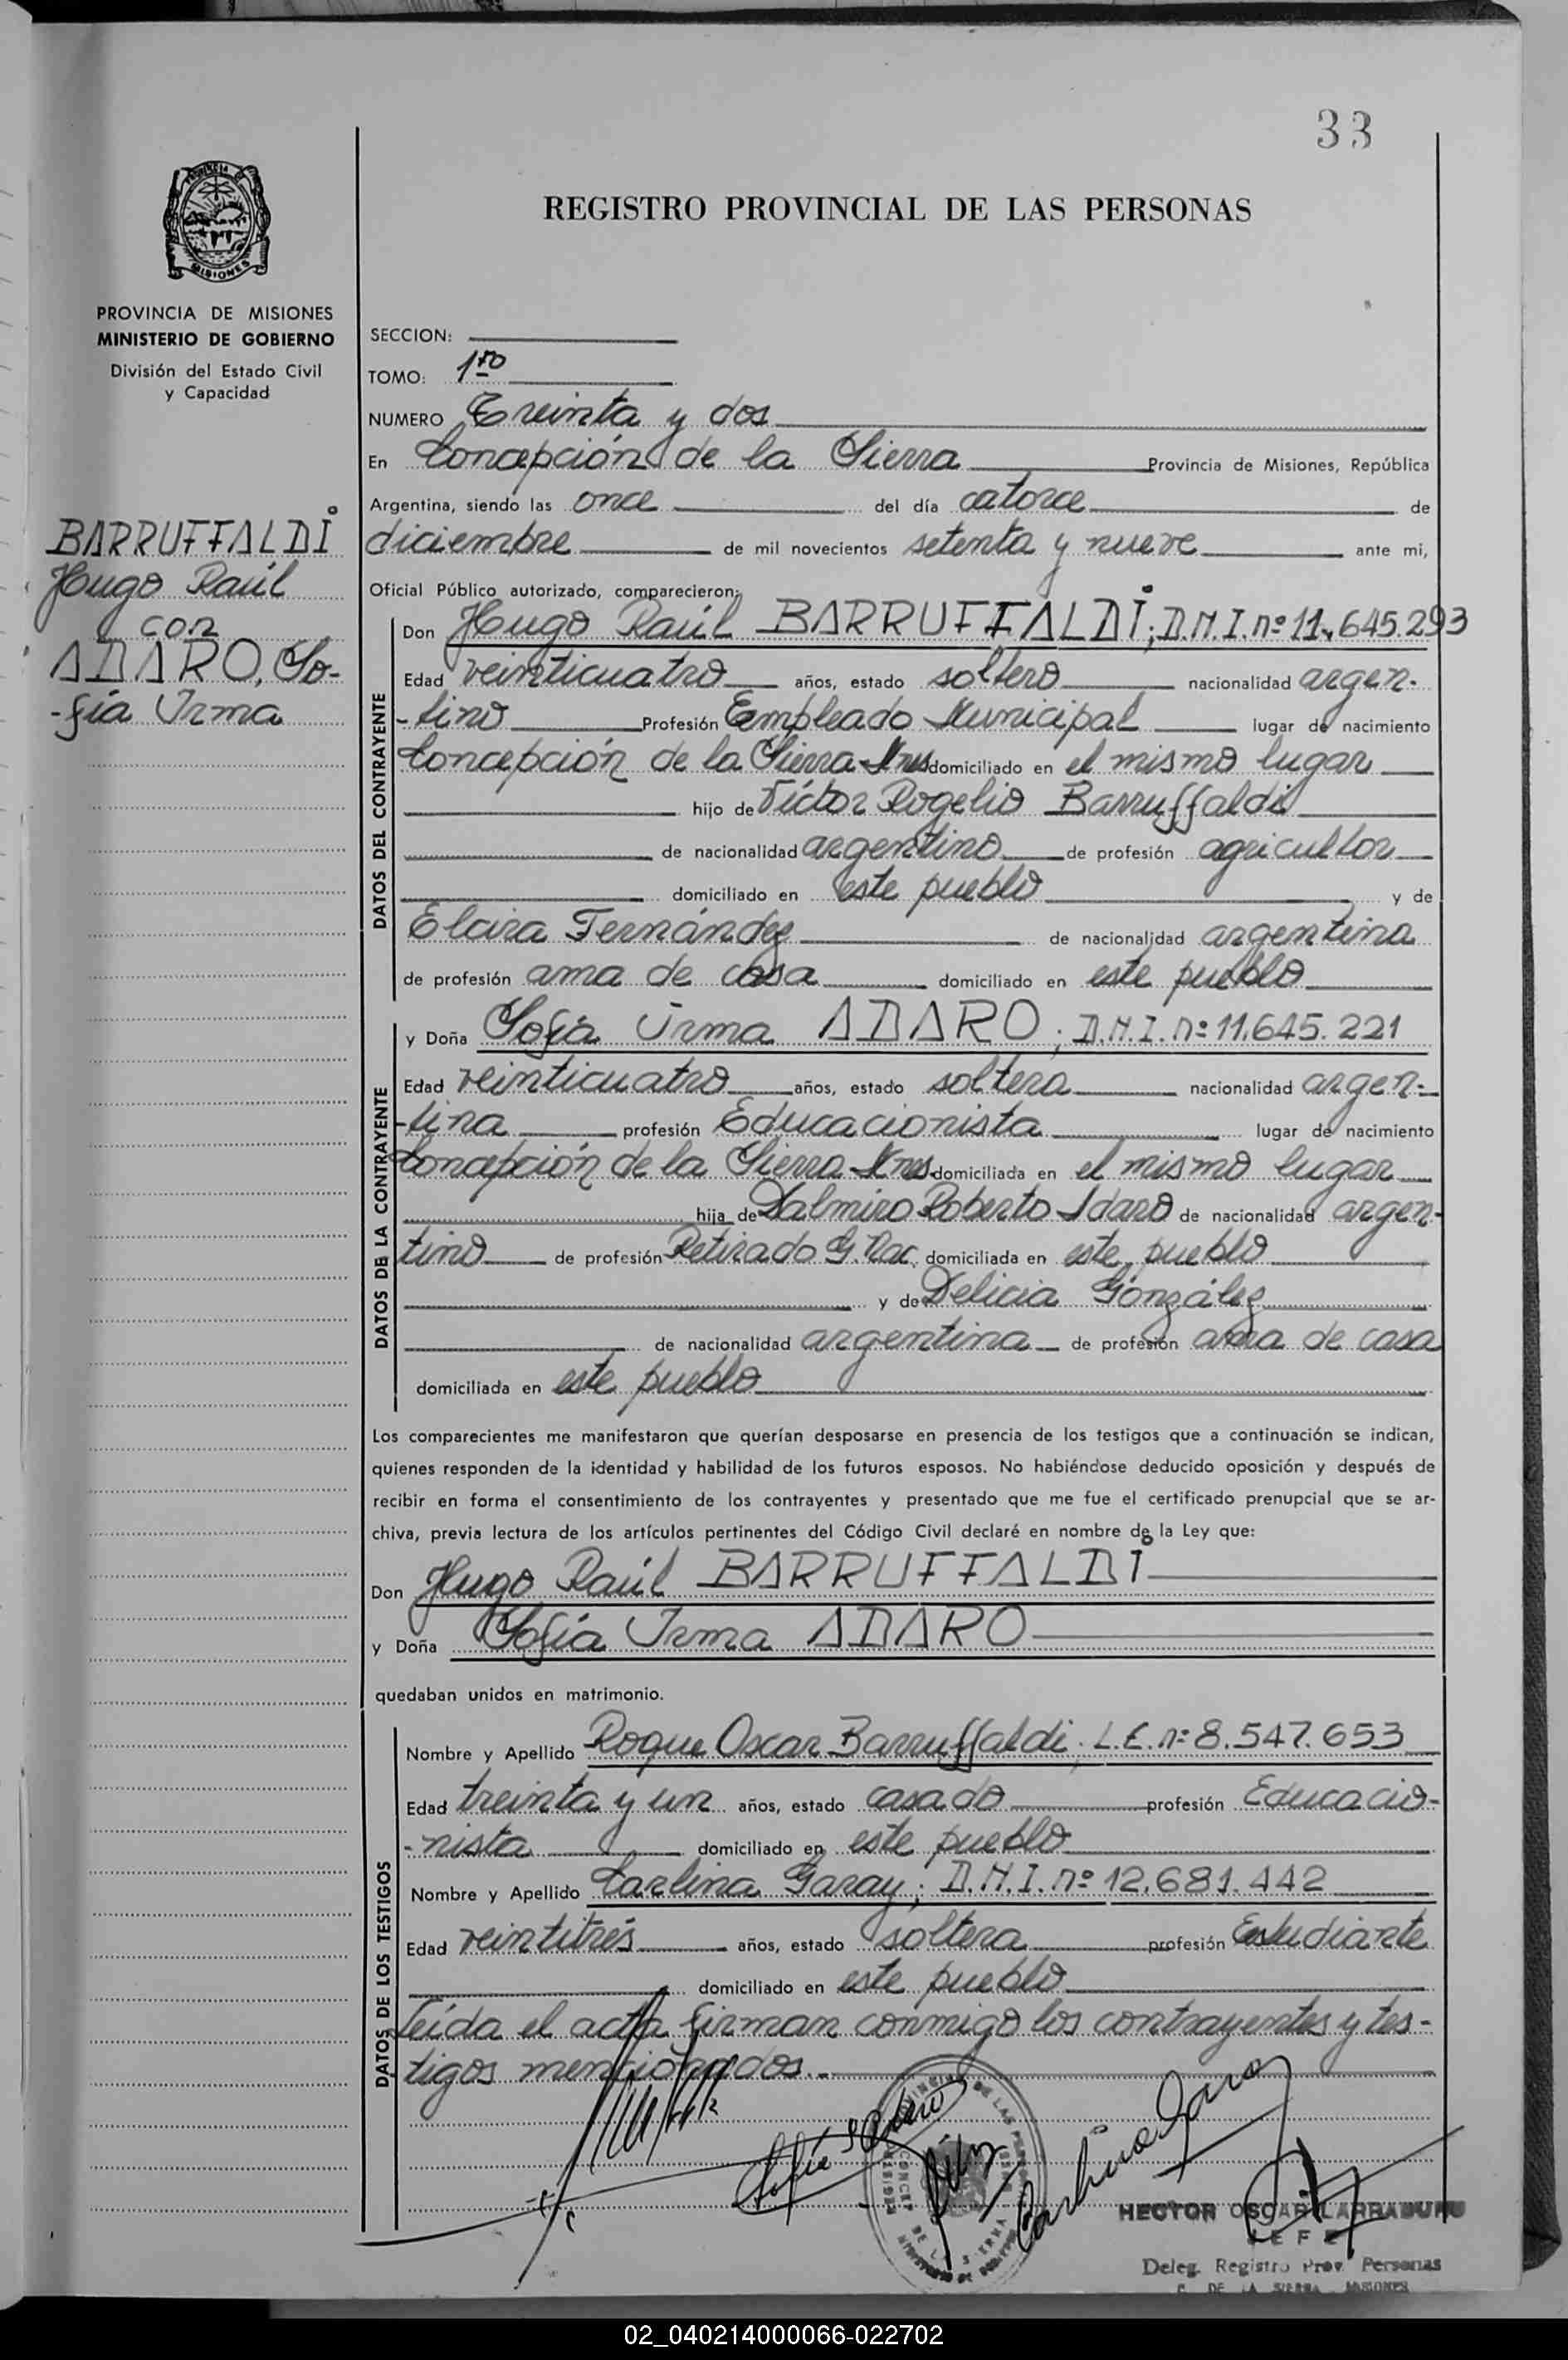 33
REGISTRO PROVINCIAL DE LAS PERSONAS
MISIONES
PROVINCIA DE MISIONES
MINISTERIO DE GOBIERNO
División del Estado Civil
y Capacidad
BARRUFFALDI
Hugo Raúl
con
ADARO, So-
-fía Irma
SECCION:
TOMO: 1ro
NUMERO Treinta y dos
En Concepción de la Sierra Provincia de Misiones, República
Argentina, siendo las once del día catorce de
diciembre de mil novecientos setenta y nueve ante mi,
Oficial Público autorizado, comparecieron:
DATOS DEL CONTRAYENTE
Don Hugo Raúl BARRUFFALDI; D.N.I. nº 11.645.293
Edad veinticuatro años, estado soltero nacionalidad argen-
-tino Profesión Empleado Municipal lugar de nacimiento
Concepción de la Sierra-Mnes domiciliado en el mismo lugar
hijo de Víctor Rogelio Barruffaldi
de nacionalidad argentino de profesión agricultor
domiciliado en este pueblo y de
Elcira Fernández de nacionalidad argentina
de profesión ama de casa domiciliado en este pueblo
DATOS DE LA CONTRAYENTE
y Doña Sofía Irma ADARO; D.N.I. nº 11.645.221
Edad veinticuatro años, estado soltera nacionalidad argen-
-tina profesión Educacionista lugar de nacimiento
Concepción de la Sierra-Mnes. domiciliada en el mismo lugar
hija de Dalmiro Roberto Adaro de nacionalidad argen-
tino de profesión Retirado G. Nac. domiciliada en este pueblo
y de Delicia González
de nacionalidad argentina de profesión ama de casa
domiciliada en este pueblo
Los comparecientes me manifestaron que querían desposarse en presencia de los testigos que a continuación se indican,
quienes responden de la identidad y habilidad de los futuros esposos. No habiéndose deducido oposición y después de
recibir en forma el consentimiento de los contrayentes y presentado que me fue el certificado prenupcial que se ar-
chiva, previa lectura de los artículos pertinentes del Código Civil declaré en nombre de la Ley que:
Don Hugo Raúl BARRUFFALDI
y Doña Sofía Irma ADARO
quedaban unidos en matrimonio.
DATOS DE LOS TESTIGOS
Nombre y Apellido Roque Oscar Barruffaldi; L.E. nº 8.547.653
Edad treinta y un años, estado casado profesión Educacio-
-nista domiciliado en este pueblo
Nombre y Apellido Carlina Garay; D.N.I. nº 12.681.442
Edad veintitrés años, estado soltera profesión Estudiante
domiciliado en este pueblo
Leída el acta firman conmigo los contrayentes y tes-
tigos mencionados.-
Sofía I Adaro
Carlina Garay
HECTOR OSCAR LARRABURU
JEFE
Deleg. Registro Prov. Personas
C. DE LA SIERRA MISIONES
02_040214000066-022702